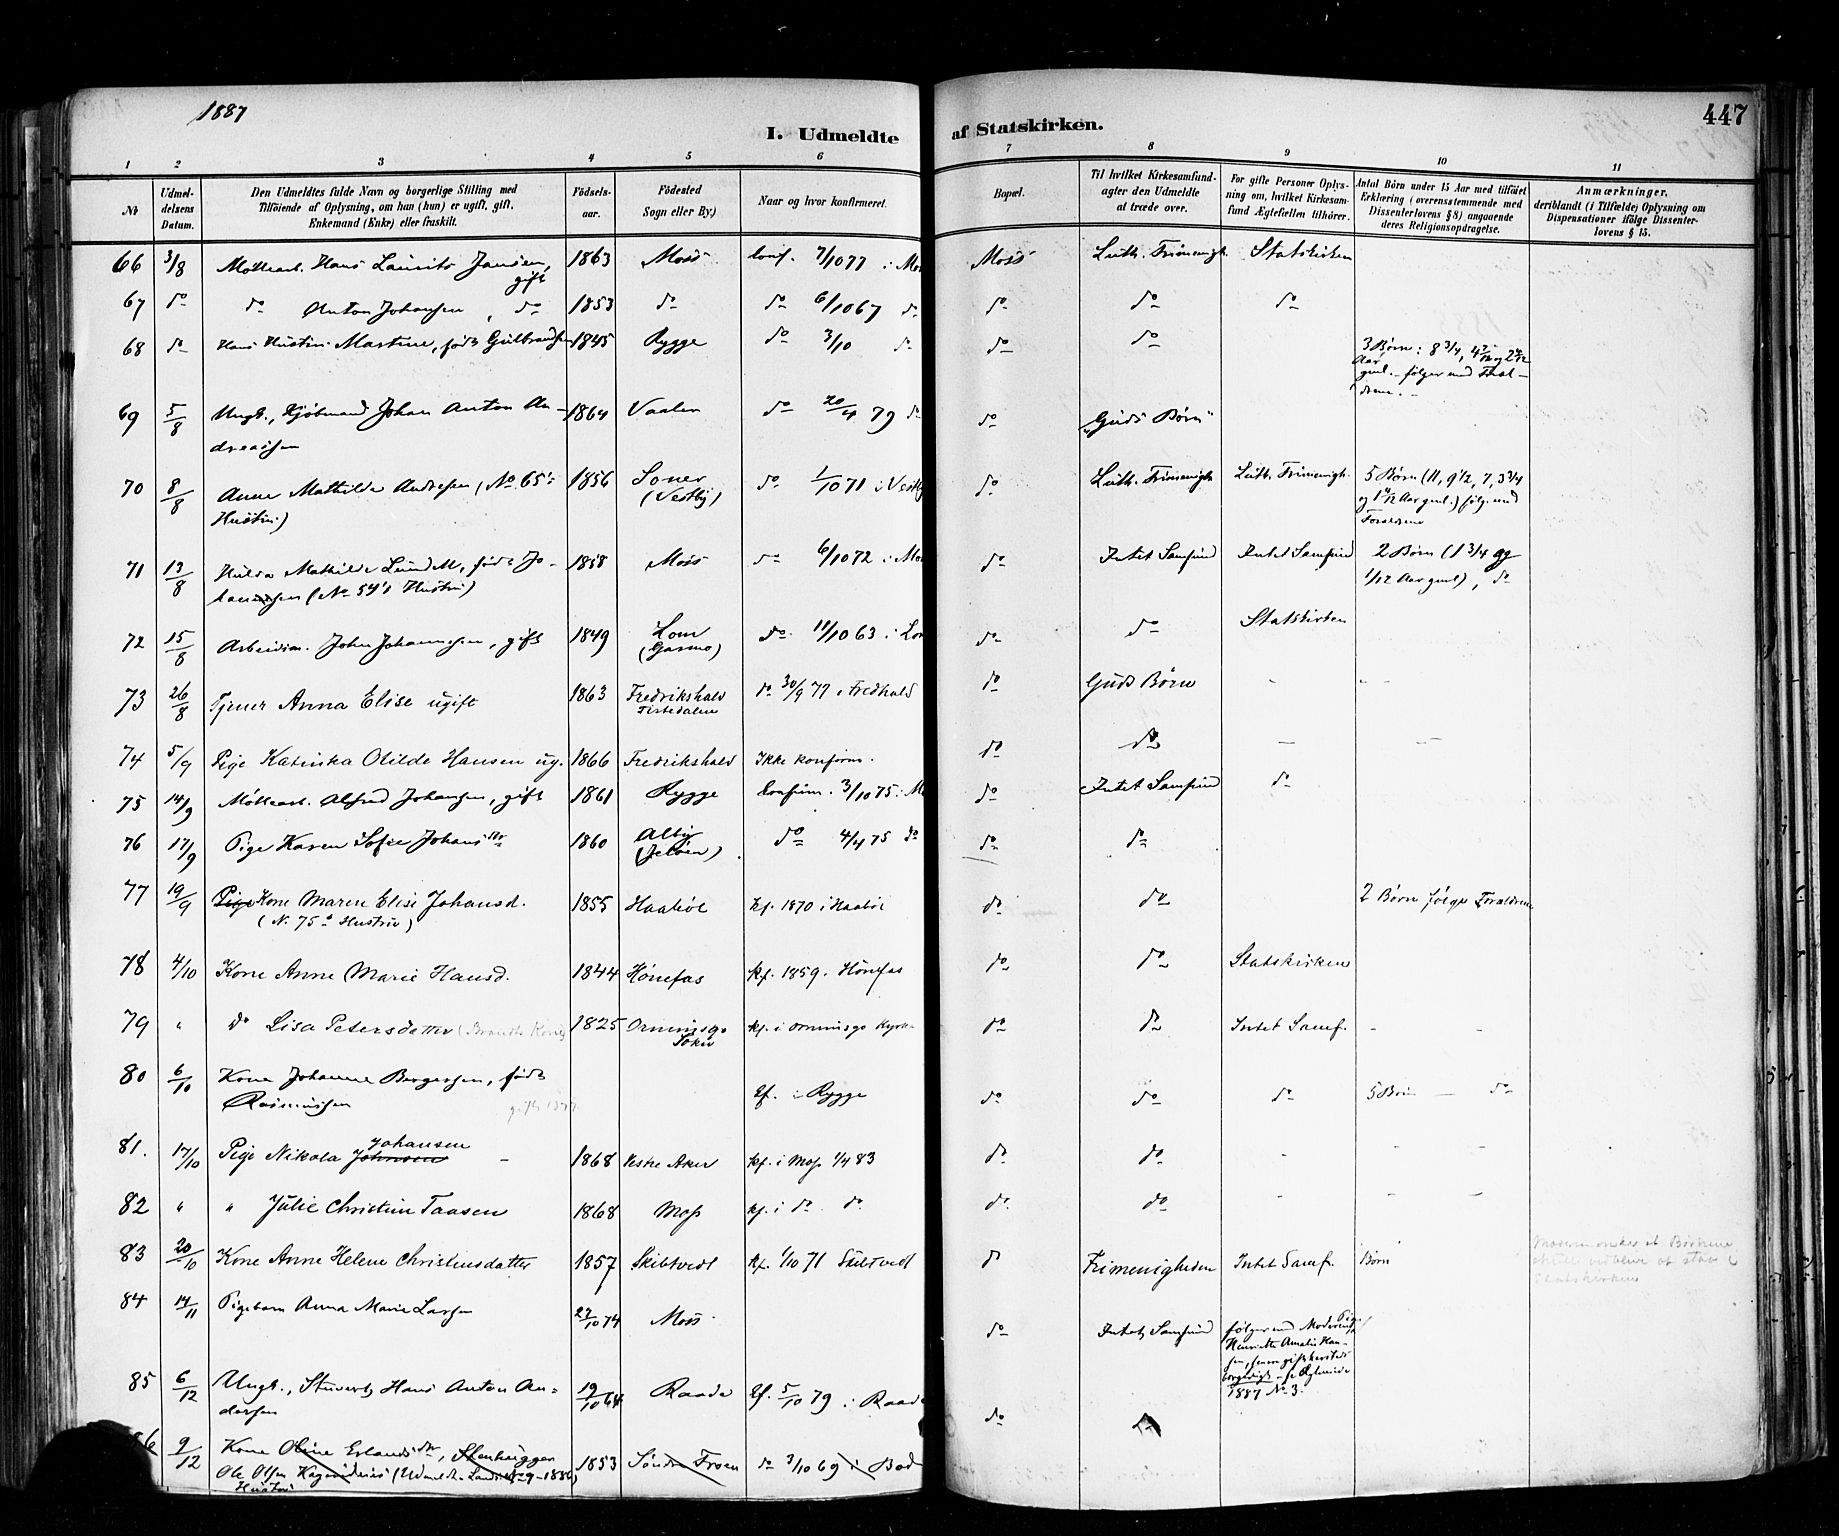 1887
447
I. Udmeldte af Statskirken.
1 2 3 4 5 6 7 8 9 10 11
№
Udmel-
delsens
Datum.
Den Udmeldtes fulde Navn og borgerlige Stilling med
Tilføiende af Oplysning, om han (hun) er ugift, gift,
Enkemand (Enke) eller fraskilt.
Fødsels-
aar.
Fødested
Sogn eller By.)
Naar og hvor konfirmeret.
Bopæl.
Til hvilket Kirkesamfund-
agter den Udmeldte
at træde over.
For gifte Personer Oplys-
ning om, hvilket Kirkesam-
fund Ægtefællen tilhører.
Antal Børn under 15 Aar med tilføiet
Erklæring (overensstemmende med
Dissenterlovens § 8) angaaende
deres Religionsopdragelse.
Anmærkninger,
deriblandt (i Tilfælde) Oplysning om
Dispensationer ifølge Dissenter-
lovens § 15.
66 3/8 Møllearb. Hans Laurits Jansen, gift 1863 Moss konf. 7/10 77 i Mo Moss Luth. Frimenigh. Statskirken
67 do do Anton Johansen, do 1853 do do 6/10 67 do do do do
68 do Hans Hustru Martine, født Gulbrandsen 1845 Rygge do 3/10 do do do 3 Børn: 8 3/4,
69 5/8 Ungk., Kjøbmand Johan Anton An-
dreassen 1864 Vaaler do 20/4 79 do do "Guds Børn"
70 8/8 Anne Mathilde Andresen (No 65's
Hustru) 1856 Soner
(Vestby) do 1/10 71 i Vestby do Luth. Frimenigh Luth. Frimenigh. 5 Børn (11, 9 1/2, 7, 3 3/4
og 1 4/12 Aar gml.) følg. med
Forældrene
71 13/8 Hulda Mathilde Lund, født Jo-
hansen (No 54's Hustru) 1858 Moss do 6/10 72 i Mo do Intet Samfund Intet Samfund 2 Børn (1 3/4 og
1/12 Aar gml), do
72 15/8 Arbeidsm. John Johannesen, gift 1849 Lom
(Garmo) do 11/10 63 i Lom do do Statskirken
73 26/8 Tjener Anna Elise ugift 1863 Fredrikshald
Tistedalen do 30/9 77 i Fredhald do Guds Børn - - -
74 5/9 Pige Katinka Otilde Hansen ug. 1866 Fredrikshald Ikke konfirm. do do — —
75 14/9 Møllearb. Alfred Johansen, gift 1861 Rygge konfirm. 3/10 75 i Mo do Intet Samfund do
76 17/9 Pige Karen Sofie Johansdtr 1860 Alby
(Jeløen) do 4/4 75 do do do
77 19/9 Pige Kone Maren Elise Johansd.
(N. 75s Hustru) 1855 Haabøl kf. 1870 i Haabøl do do 2 Børn følge Forældrene
78 4/10 Kone Anne Marie Hansd. 1844 Hønefos kf. 1859 i Hønefos do do Statskirken
79 " do Lisa Petersdatter 1825 do do Intet Samf. - -
80 6/10 Kone Johanne Bergersen, født
Rasmussen kf. i Rygge do do do 5 Børn — do
81. 17/10 Pige Nikola Johnsen Johansen - 1868 Vestre Aker kf. i Moss 1/4 83 do do - - -
82 " " Julie Christine Taasen 1868 Moss kf. i do do do do - - -
83 20/10 Kone Anne Helene Christensdatter 1857 Skibtvedt kf. 1/10 71 Skibtved do Frimenigheden Intet Samf. Børn
84 14/11 Pigebarn Anna Marie Larsen 27/10 74 Moss do Intet Samfund følger med Moderen Pige
Henriette Amalie Han-
sen,
1887 No 3.
85 6/12 Ungk., Stuvert Hans Anton An-
dersen 19/10 64 Raade kf. 5/10 79 i Raade do do
86 9/12 Kone Oline Erlandsdtr, Stenhugger
Ole Olsen (Udmeldte 1886)
Hustru 1853 Søndre Froen do 3/10 69 i Bod